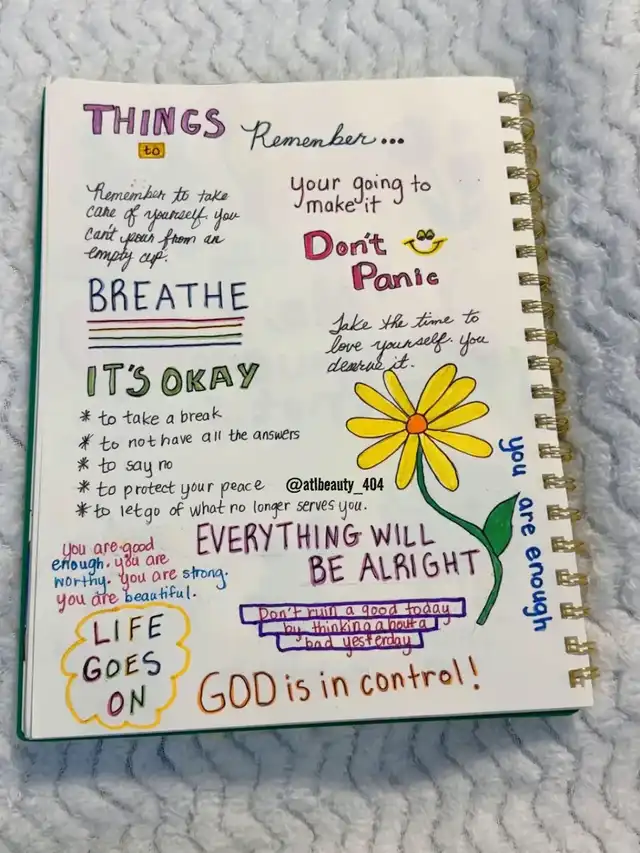 THINGS
to
Remember...
Remember to take
care of yourself. you
can't pour from an
empty cup.
your going to
make it
Don't
Panic
BREATHE
Take the time to
love yourself. you
deserve it.
IT'S OKAY
* to take a break
* to not have all the answers
* to say no
* to protect your peace
* to let go of what no longer serves you.
@atlbeauty_404
you are enough
you are good
enough. you are
worthy. you are strong.
you are beautiful.
EVERYTHING WILL
BE ALRIGHT
Don't ruin a good today
by thinking about a
bad yesterday
LIFE
GOES
ON
GOD is in control!